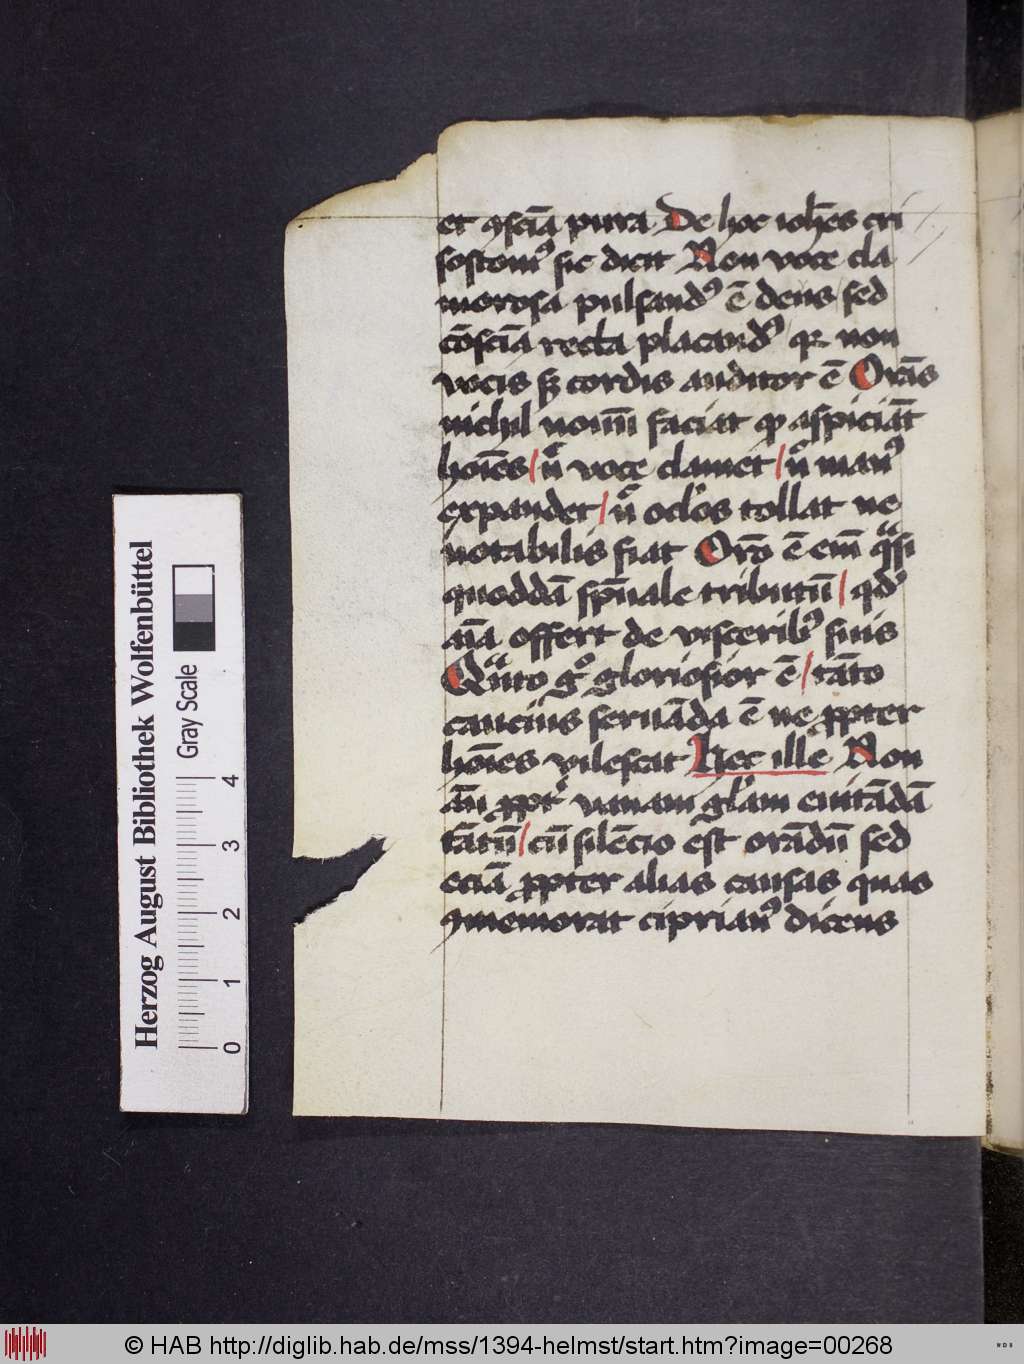 et ꝯsciā pura De hoc ioh̄es cri
sostomꝰ sic dicit Non voce cla
morosa pulsandꝰ ē deus sed
cōsciā recta placandꝰ qꝛ non
vocis sꝫ cordis auditor ē Orās
nichil noui faciat qͦ aspiciāt
hoīes / nͦ voce clamet / nͦ manꝰ
expandet / nͦ oclōs tollat ne
notabilis fiat Orō ē em̄ qͣsi
quoddā sp̄uale tributū / qd̓
aīa offert de visceribꝰ suis
Qͣnto gͦ gloriosior ē / tāto
caucius seruāda ē ne ꝓpter
hoīes vilescat Hec ille Non
aū ꝓpt̓ vanam gl̓am euitādā
tātū / cū silēcio est orādū sed
eciā ꝓpter alias causas quas
ꝯmemorat ciprianꝰ dicens
Herzog August Bibliothek Wolfenbüttel
Gray Scale
0 1 2 3 4
© HAB http://diglib.hab.de/mss/1394-helmst/start.htm?image=00268